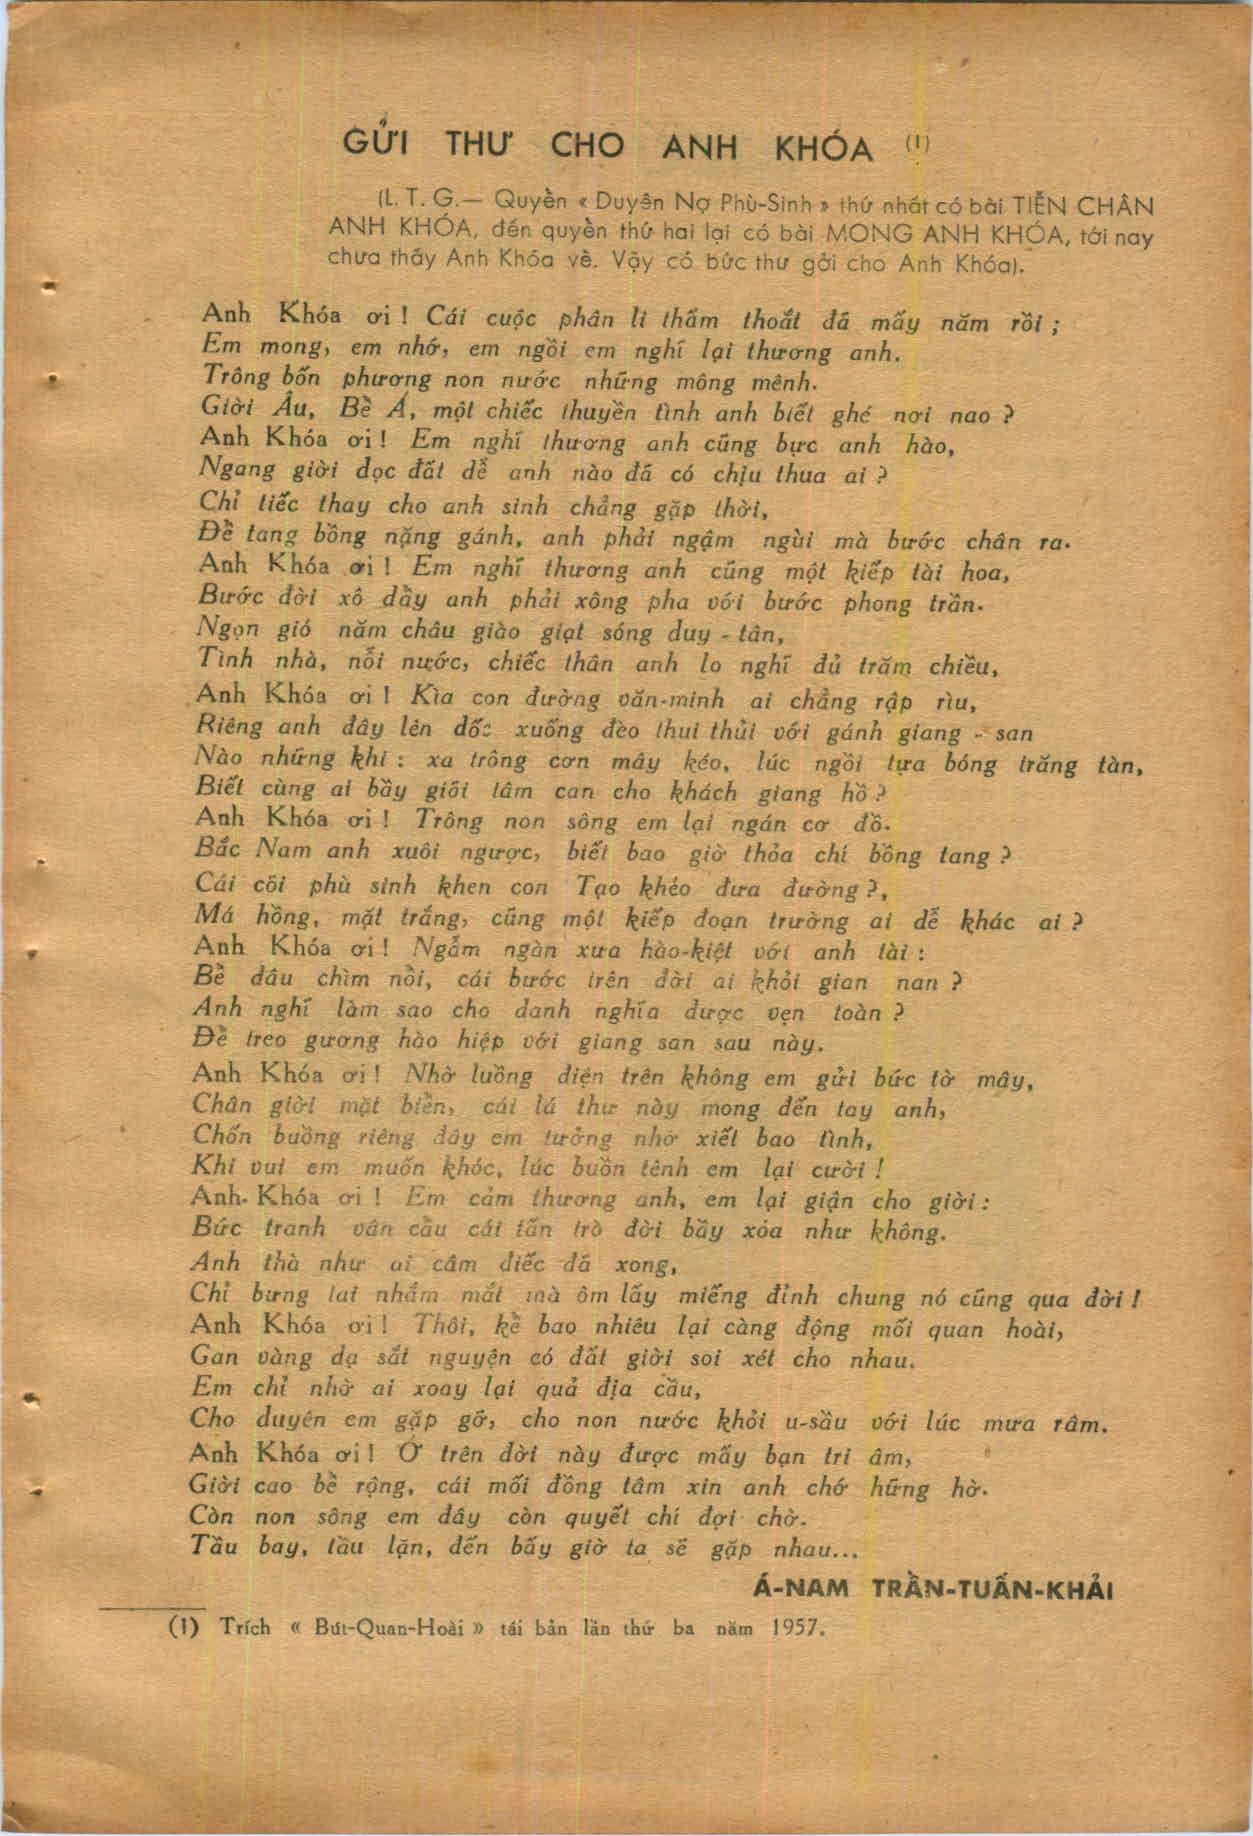 GỬI THƯ CHO ANH KHÓA (1)
(L. T. G.— Quyển « Duyên Nợ Phù-Sinh » thứ nhất có bài TIỄN CHÂN
ANH KHÓA, đến quyển thứ hai lại có bài MONG ANH KHÓA, tới nay
chưa thấy Anh Khóa về. Vậy có bức thư gởi cho Anh Khóa).
Anh Khóa ơi ! Cái cuộc phân li thấm thoắt đã mấy năm rồi ;
Em mong, em nhớ, em ngồi em nghĩ lại thương anh.
Trông bốn phương non nước những mông mênh.
Giời Âu, Bể Á, một chiếc thuyền tình anh biết ghé nơi nao ?
Anh Khóa ơi ! Em nghĩ thương anh cũng bực anh hào,
Ngang giời dọc đất dễ anh nào đã có chịu thua ai ?
Chỉ tiếc thay cho anh sinh chẳng gặp thời,
Để tang bồng nặng gánh, anh phải ngậm ngùi mà bước chân ra.
Anh Khóa ơi ! Em nghĩ thương anh cũng một kiếp tài hoa,
Bước đời xô đẩy anh phải xông pha với bước phong trần.
Ngọn gió năm châu giào giạt sóng duy - tân,
Tình nhà, nỗi nước, chiếc thân anh lo nghĩ đủ trăm chiều,
Anh Khóa ơi ! Kìa con đường văn-minh ai chẳng rập rìu,
Riêng anh đây lên dốc xuống đèo thui thủi với gánh giang - san
Nào những khi : xa trông cơn mây kéo, lúc ngồi tựa bóng trăng tàn,
Biết cùng ai bầy giõi tâm can cho khách giang hồ ?
Anh Khóa ơi ! Trông non sông em lại ngán cơ đồ.
Bắc Nam anh xuôi ngược, biết bao giờ thỏa chí bồng tang ?
Cái cõi phù sinh khen con Tạo khéo đưa đường ?,
Má hồng, mặt trắng, cũng một kiếp đoạn trường ai dễ khác ai ?
Anh Khóa ơi ! Ngẫm ngàn xưa hào-kiệt với anh tài :
Bể dâu chìm nổi, cái bước trên đời ai khỏi gian nan ?
Anh nghĩ làm sao cho danh nghĩa được vẹn toàn ?
Để treo gương hào hiệp với giang san sau này.
Anh Khóa ơi ! Nhờ luồng điện trên không em gửi bức tờ mây,
Chân giời mặt biển, cái lá thư này mong đến tay anh,
Chốn buồng riêng đây em tưởng nhớ xiết bao tình,
Khi vui em muốn khóc, lúc buồn tênh em lại cười !
Anh Khóa ơi ! Em cảm thương anh, em lại giận cho giời :
Bức tranh vân cẩu cái tấn trò đời bầy xóa như không.
Anh thà như ai câm điếc đã xong,
Chỉ bưng tai nhắm mắt mà ôm lấy miếng đỉnh chung nó cũng qua đời !
Anh Khóa ơi ! Thôi, kể bao nhiêu lại càng động mối quan hoài,
Gan vàng dạ sắt nguyện có đất giời soi xét cho nhau.
Em chỉ nhờ ai xoay lại quả địa cầu,
Cho duyên em gặp gỡ, cho non nước khỏi u-sầu với lúc mưa râm.
Anh Khóa ơi ! Ở trên đời này được mấy bạn tri âm,
Giời cao bể rộng, cái mối đồng tâm xin anh chớ hững hờ.
Còn non sông em đây còn quyết chí đợi chờ.
Tầu bay, tầu lặn, đến bấy giờ ta sẽ gặp nhau...
Á-NAM TRẦN-TUẤN-KHẢI
(1) Trích « Bút-Quan-Hoài » tái bản lần thứ ba năm 1957.